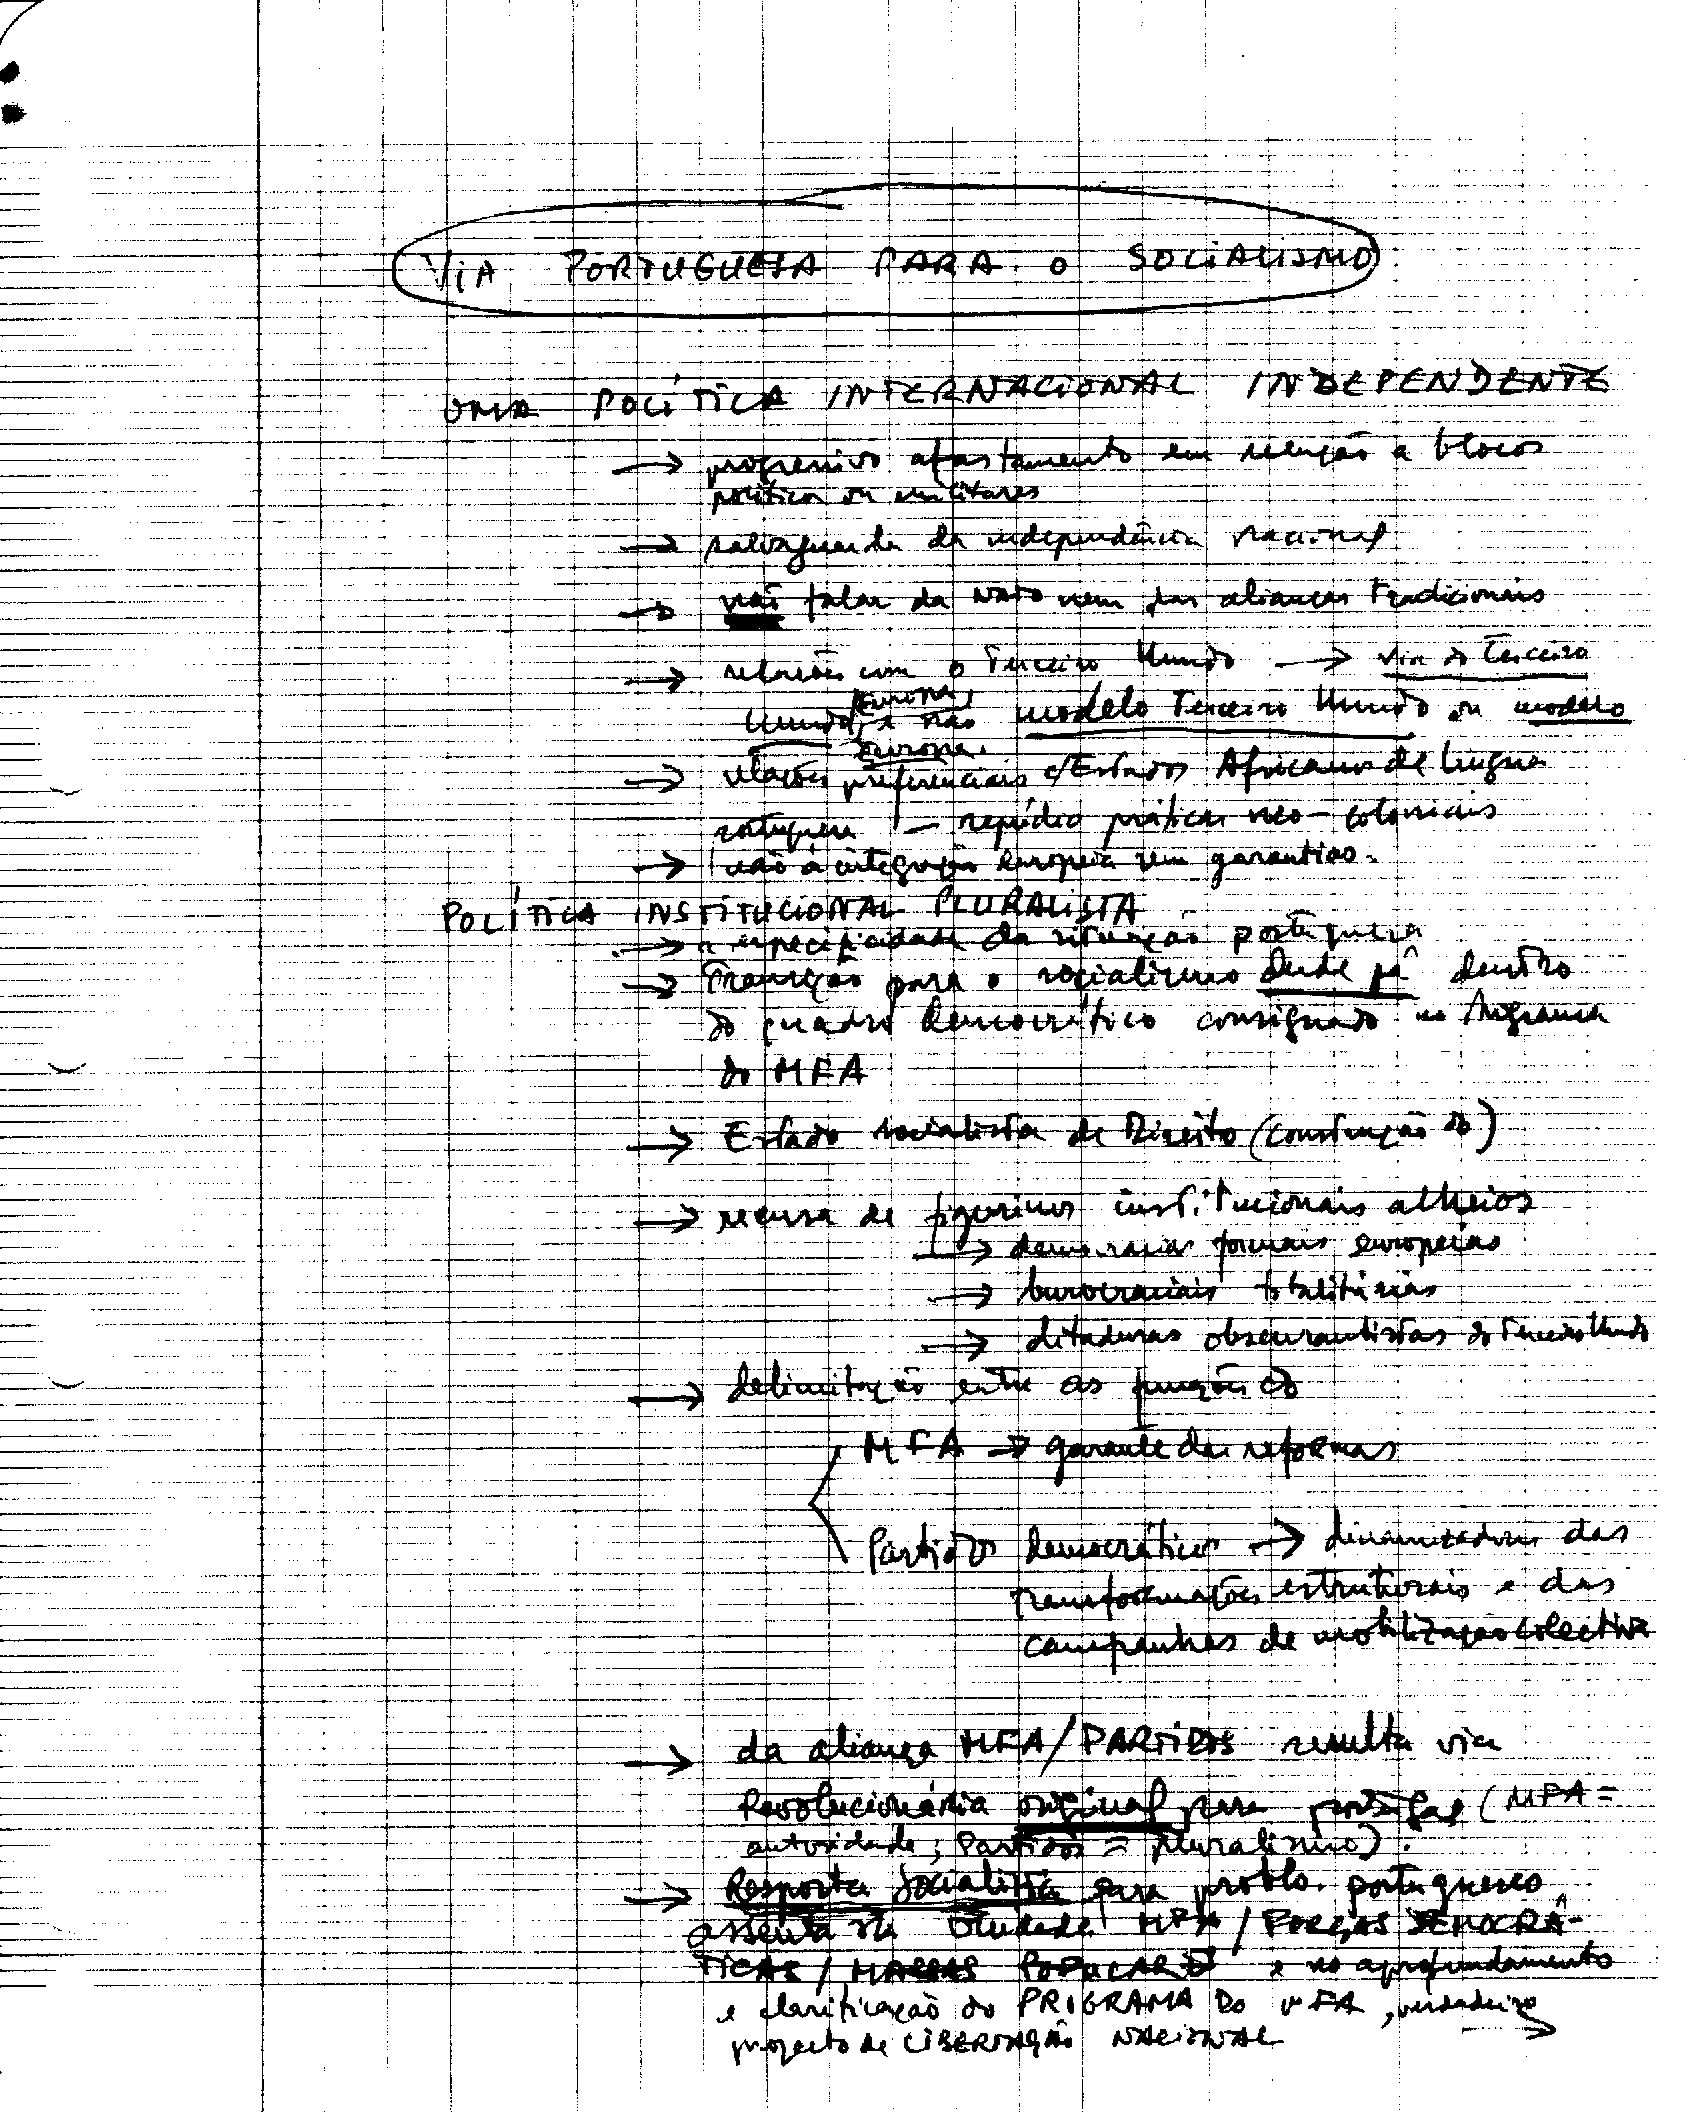 VIA PORTUGUESA PARA O SOCIALISMO
UMA POLÍTICA INTERNACIONAL INDEPENDENTE
→ progressivo afastamento em relação a blocos
políticos ou militares
→ salvaguarda da independência nacional
→ não falar da NATO nem das alianças tradicionais
→ relações com o Terceiro Mundo → via do Terceiro
Europa,
Mundo, e não modelo Terceiro Mundo ou modelo
Europa.
→ relações preferenciais c/ Estados Africanos de língua
portuguesa — repúdio práticas neo-coloniais
→ não à integração europeia sem garantias.
POLÍTICA INSTITUCIONAL PLURALISTA
→ a especificidade da situação portuguesa
→ Transição para o socialismo desde já dentro
do quadro democrático consignado no Programa
do MFA
→ Estado socialista de Direito (construção do)
→ recusa de figurinos institucionais alheios
→ democracias formais europeias
→ burocraciais totalitárias
→ ditaduras obscurantistas do Terceiro Mundo
→ delimitação entre as funções do
MFA → garante das reformas
Partidos democráticos → dinamizadores das
transformações estruturais e das
campanhas de mobilização colectiva
→ da aliança MFA/PARTIDOS resulta via
Revolucionária original para Portugal (MFA =
autoridade; Partidos = Pluralismo).
→ Resposta Socialista para problo. portugueses
assenta na Unidade MFA / FORÇAS DEMOCRÁ-
TICAS / MASSAS POPULARES e no aprofundamento
e clarificação do PROGRAMA DO MFA, verdadeiro
projecto de LIBERTAÇÃO NACIONAL →